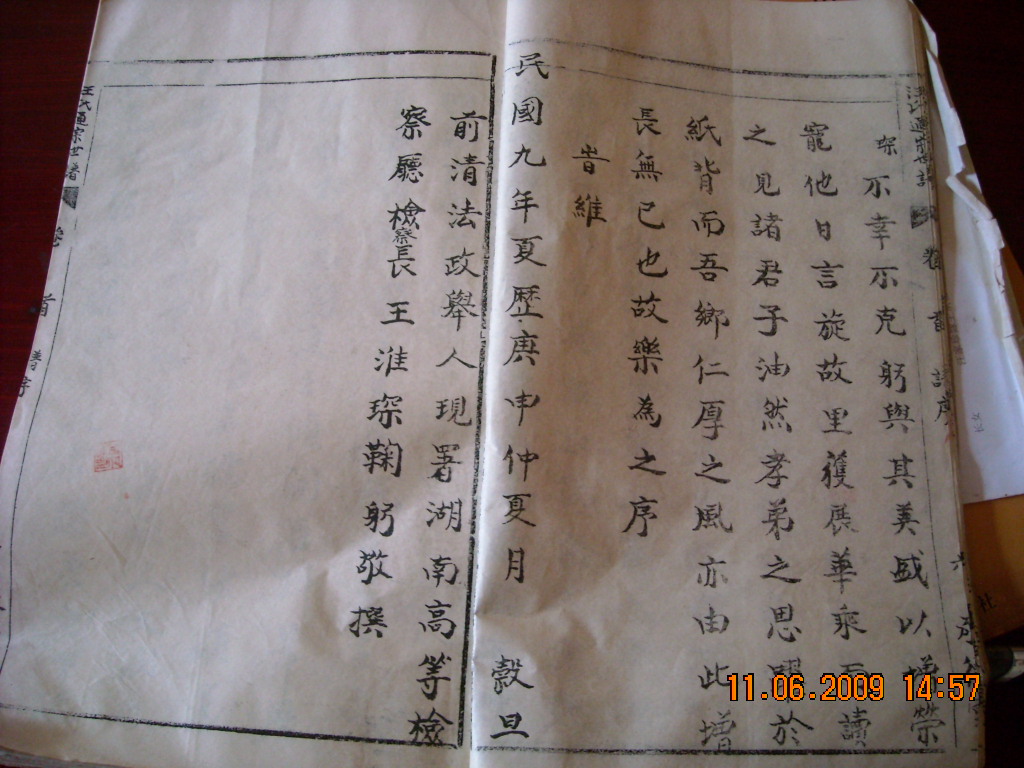 琛不幸不克躬與其美盛以增榮
寵他日言旋故里獲展華乘而讀
之見諸君子油然孝弟之思躍於
紙背而吾鄉仁厚之風亦由此增
長無已也故樂為之序
旹維
民國九年夏歷庚申仲夏月 穀旦
前清法政舉人現署湖南高等檢
察廳檢察長王淮琛鞠躬敬撰
王氏通宗世譜 卷首 譜序
11.06.2009 14:57